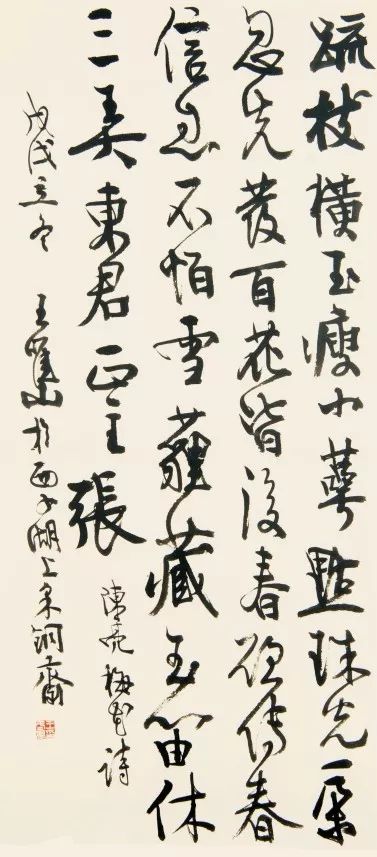 疏枝橫玉瘦小萼點珠光一朵
忽先發百花皆後春欲傳春
信息不怕雪薶藏玉笛休
三弄東君正主張
陳亮梅花詩
戊戌立冬 王山於西子湖上采銅齋